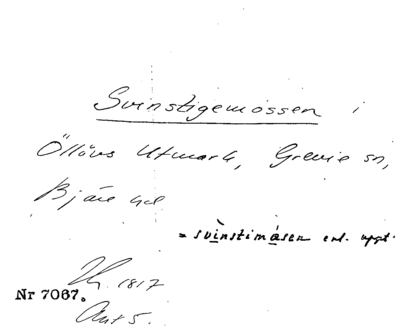 Svinstigemossen i
Öllövs Utmark, Grevie sn,
Bjäre hd
= svinstimåsen enl. uppt.
Th. 1817
Nr 7067.
Akt 5.